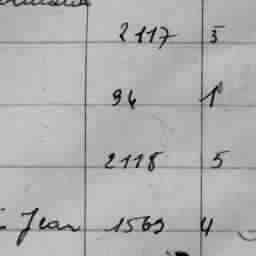 2117 5
94 1
2118 5
Jean 1569 4